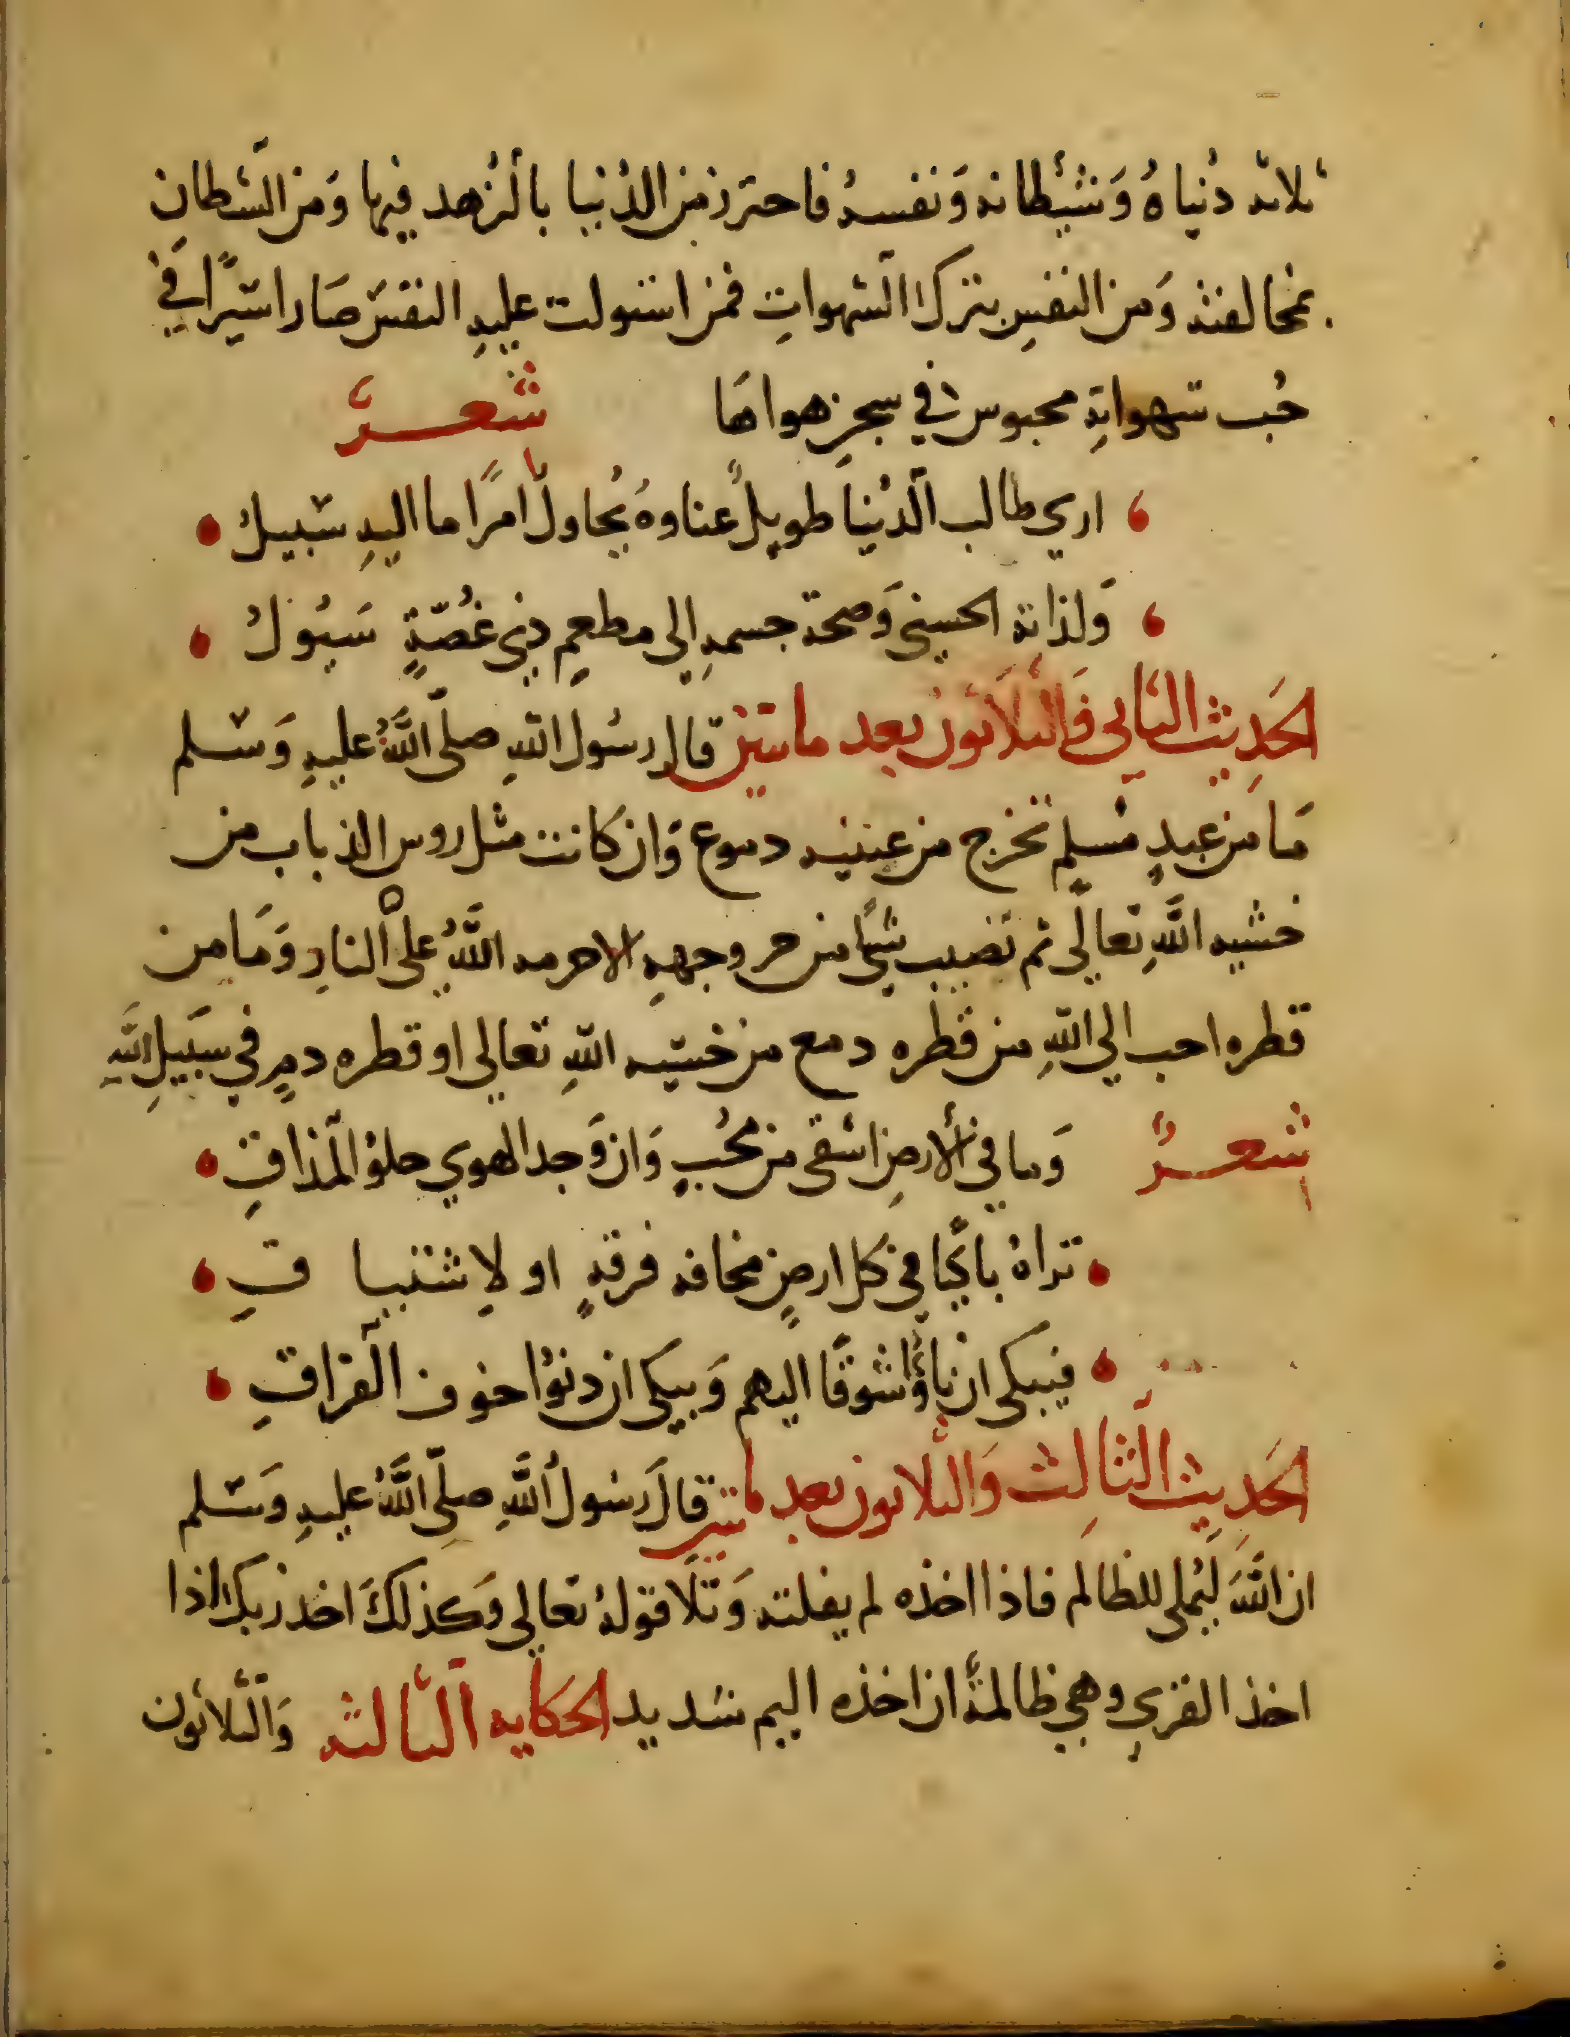 ثلاثه دُنياهُ وَشَيْطانه وَنفسهُ فاحترز من الدُنيا بالزُهد فيها وَمن الشَيطان
بمخالفته وَمن النفسِ بترك الشهواتِ فمن استولت عليهِ النفسَ صَار اسَيرًا في
حُب شهواتهِ محبوسا في سجنِ هواهَا شعر
اري طالب الدُنيا طويلٌ عناوهُ يُحاول امرًا ما اليهِ سبيل
وَلذاته الحسني وَصحة جسمهِ الي مطعمٍ ذي غُصّةٍ سَيزول
الحَديث الثاني وَالثلاثون بعد ماتين قال رسُول اللهِ صلّى اللَّهُ عليهِ وَسَلم
مَا من عبدٍ مُسلمٍ تخرج من عينيه دموع وَان كانت مثل روس الذباب من
خشيه اللَّهِ تَعالَى ثم تصيب شيًا من حر وجههِ الا حرمه اللَّهُ علي النارِ وَمَا من
قطره احب الي اللهِ من قطره دمع من خشيه اللهِ تعالى او قطره دمٍ في سَبيلِ اللهِ
شعرٌ وَما في الأرضِ اشقى من مُحبٍ وَان وَجد الهوي حلوُ المذاقِ
تراهُ باكيًا في كل ارضٍ مخافه فرقهٍ او لِاشتياقِ
فيبكى ان ناؤُا شوقًا اليهم وَيبكى ان دنوُا خوف الفراقِ
الحَديث الثالِث وَالثلاثون بعد ماتين قالَ رَسُول اللَّهِ صلّى اللَّهُ عليهِ وَسَلم
ان اللَّهَ ليُملى للظالم فاذا اخذه لم يفلته وَتلَا قولهُ تعالى وَكذلكَ اخذ ربك اذا
اخذ القري وهي ظالمةٌ ان اخذه اليم شديد الحكايه الثالثه وَالثلاثون